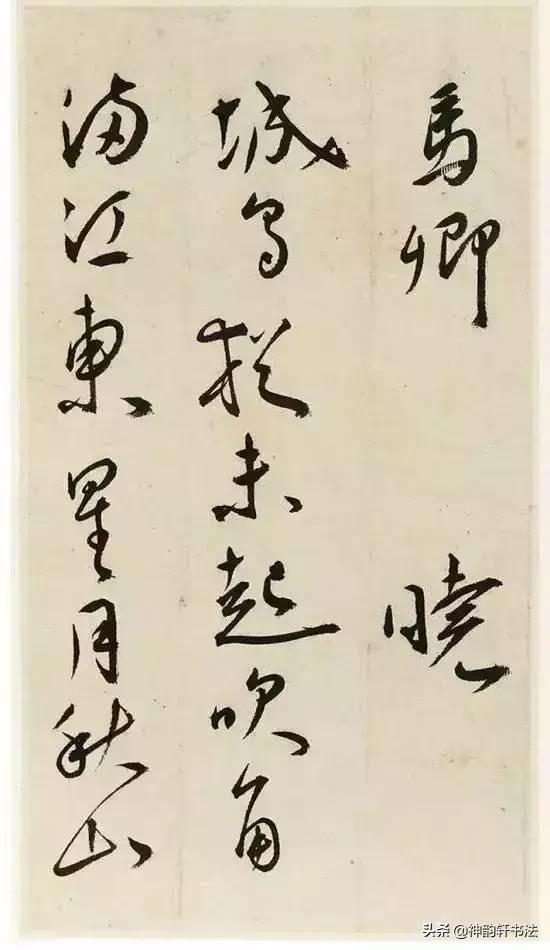 馬卿　曉
城烏猶未起吹角
滿江東星月秋山
头条@神韵轩书法